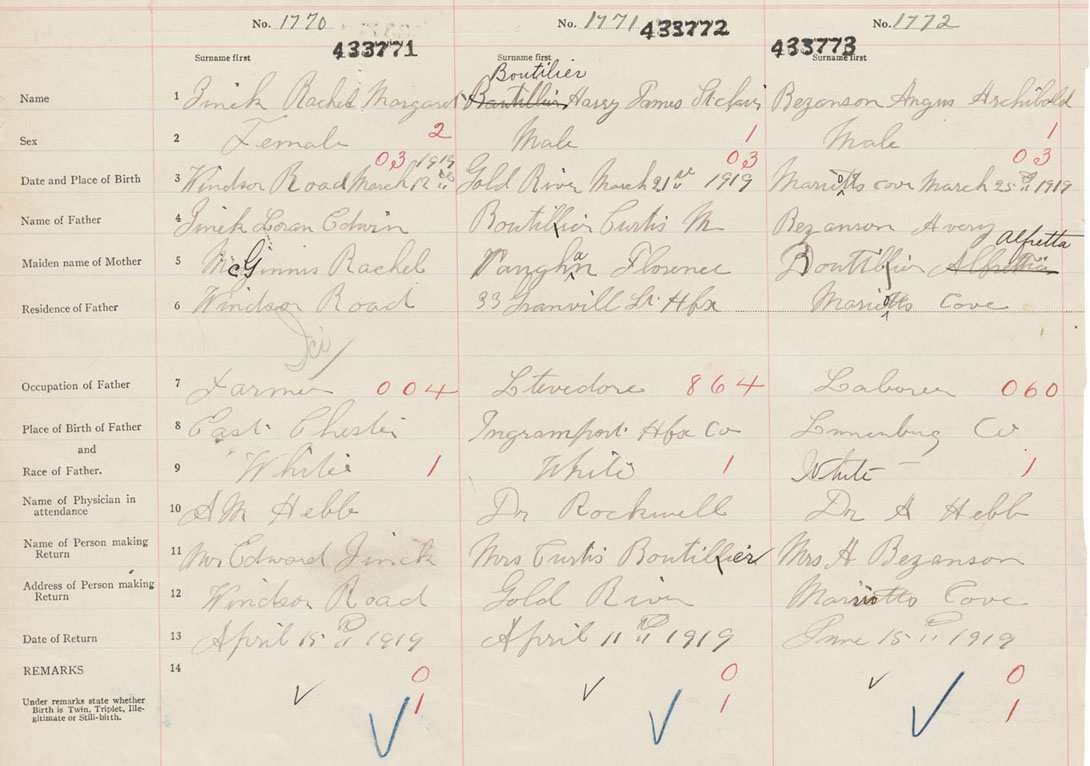 No. 1770 No. 1771 No. 1772
433771 433772 433773
Surname first Surname first Surname first
Boutilier
Name 1 Zinck Rachel Margaret Boutillier Harry James St clair Bezanson Angus Archibald
Sex 2 Female 2 Male 1 Male 1
03 1919 03 03
Date and Place of Birth 3 Windsor Road March 12th Gold River March 21st 1919 Mariotts cove March 25th 1919
Name of Father 4 Zinck Loran Edwin Boutilier Curtis M Bezanson Avery
Alfretta
Maiden name of Mother 5 McGinnis Rachel Vaughan Florence Boutilier
Residence of Father 6 Windsor Road 33 Granvill St. Hfx Mariotts Cove
Occupation of Father 7 Farmer 004 Stevedore 864 Laborer 060
Place of Birth of Father 8 East Chester Ingramport Hfx Co Lunenburg Co
and
Race of Father. 9 White 1 White 1 White 1
Name of Physician in
attendance 10 A M Hebb Dr Rockwell Dr A Hebb
Name of Person making
Return 11 Mr Edward Zinck Mrs Curtis Boutilier Mrs H Bezanson
Address of Person making
Return 12 Windsor Road Gold River Mariotts Cove
Date of Return 13 April 15th 1919 April 11th 1919 June 15th 1919
REMARKS 14 0 0 0
Under remarks state whether
Birth is Twin, Triplet, Ille-
gitimate or Still-birth. 1 1 1